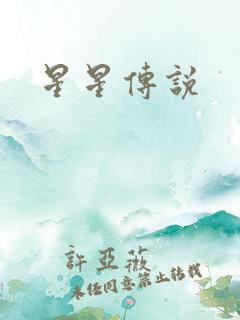 星星傳說
許亞薇
未经同意禁止转载